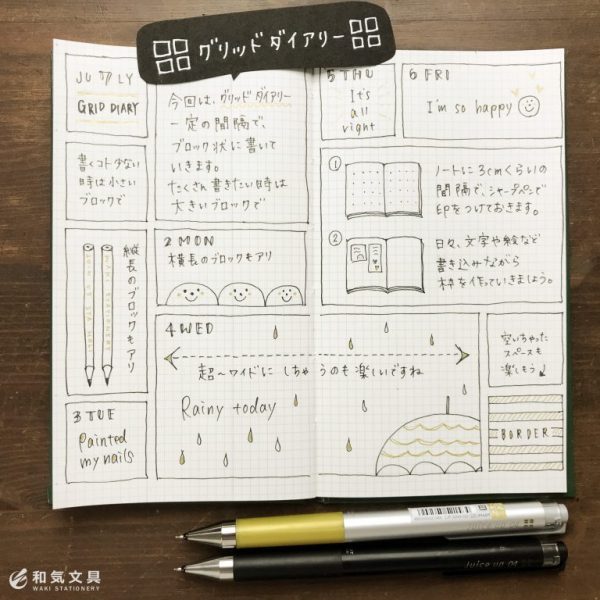 グリッドダイアリー
JULY
GRID DIARY
今回は、グリッドダイアリー
一定の間隔で、
ブロック状に書いて
いきます。
たくさん書きたい時は
大きいブロックで
書くコト少ない
時は小さい
ブロックで
縦長のブロックもアリ
2 MON
横長のブロックもアリ
3 TUE
Painted
my nails
4 WED
超〜ワイドにしちゃうのも楽しいですね
Rainy today
5 THU
It's
all
right
6 FRI
I'm so happy
① ノートに3cmくらいの
間隔で、シャープペンで
印をつけておきます。
② 日々、文字や絵など
書き込みながら
枠を作っていきましょう。
空いちゃった
スペースも
楽しもう
BORDER
Juice up 04
和気文具
WAKI STATIONERY